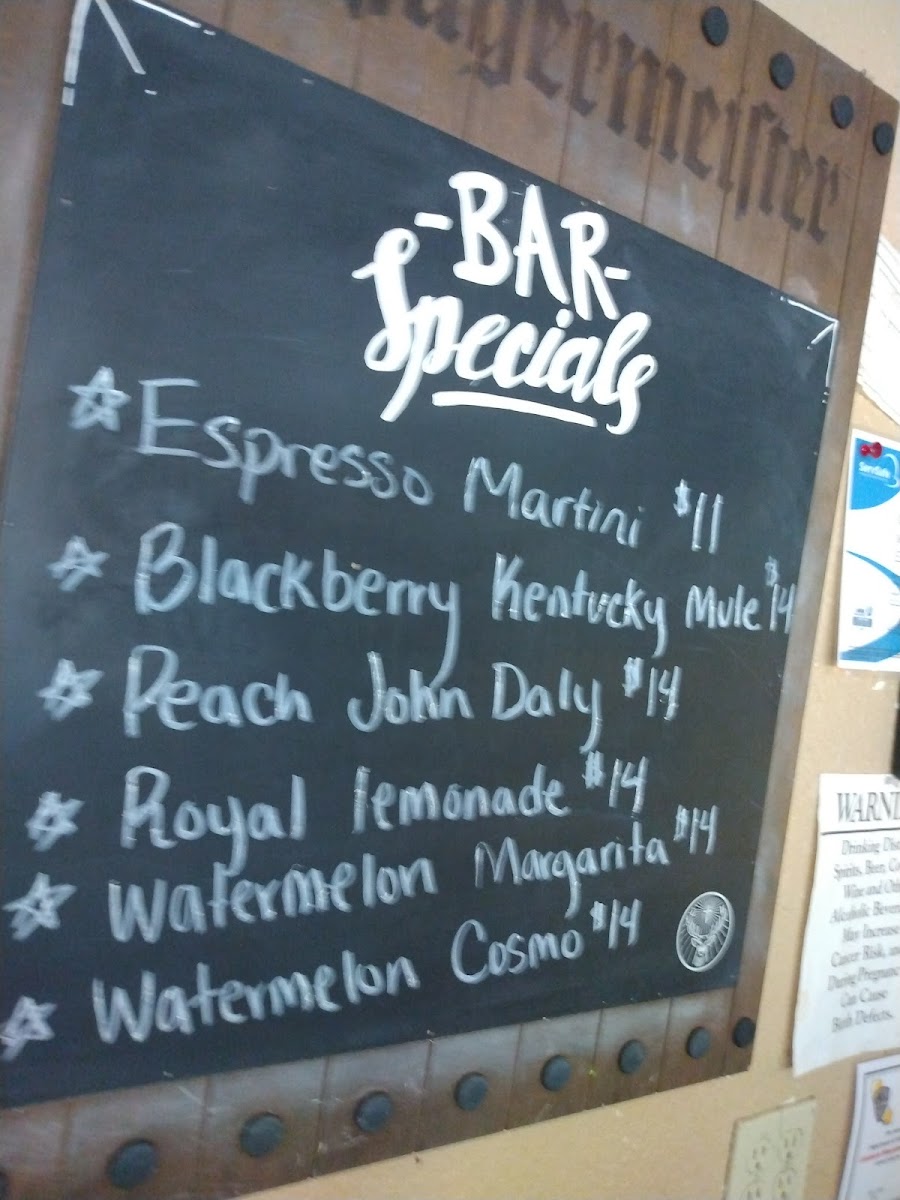 Jägermeister
-BAR-
Specials
Espresso Martini $11
Blackberry Kentucky Mule $14
Peach John Daly $14
Royal lemonade $14
Watermelon Margarita $14
Watermelon Cosmo $14
ServSafe
WARNI
Drinking Dist
Spirits, Beer, Co
Wine and Oth
Alcoholic Bever
May Increase
Cancer Risk, an
During Pregnanc
Can Cause
Birth Defects.